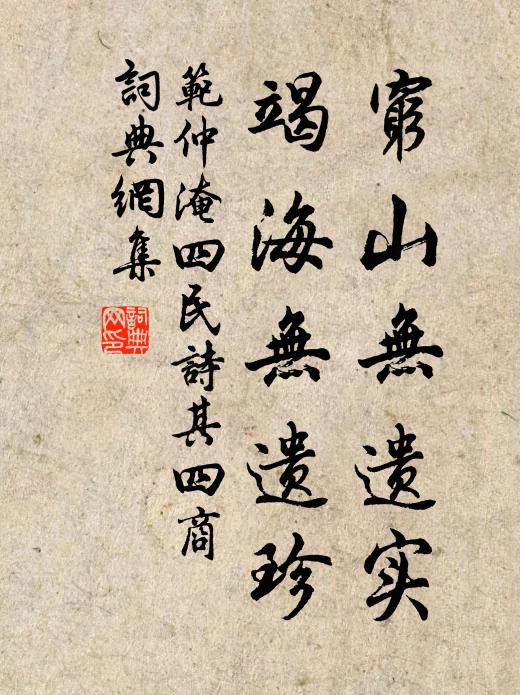 窮山無遺实
竭海無遺珍
範仲淹四民詩其四商
詞典網集
詞典網印